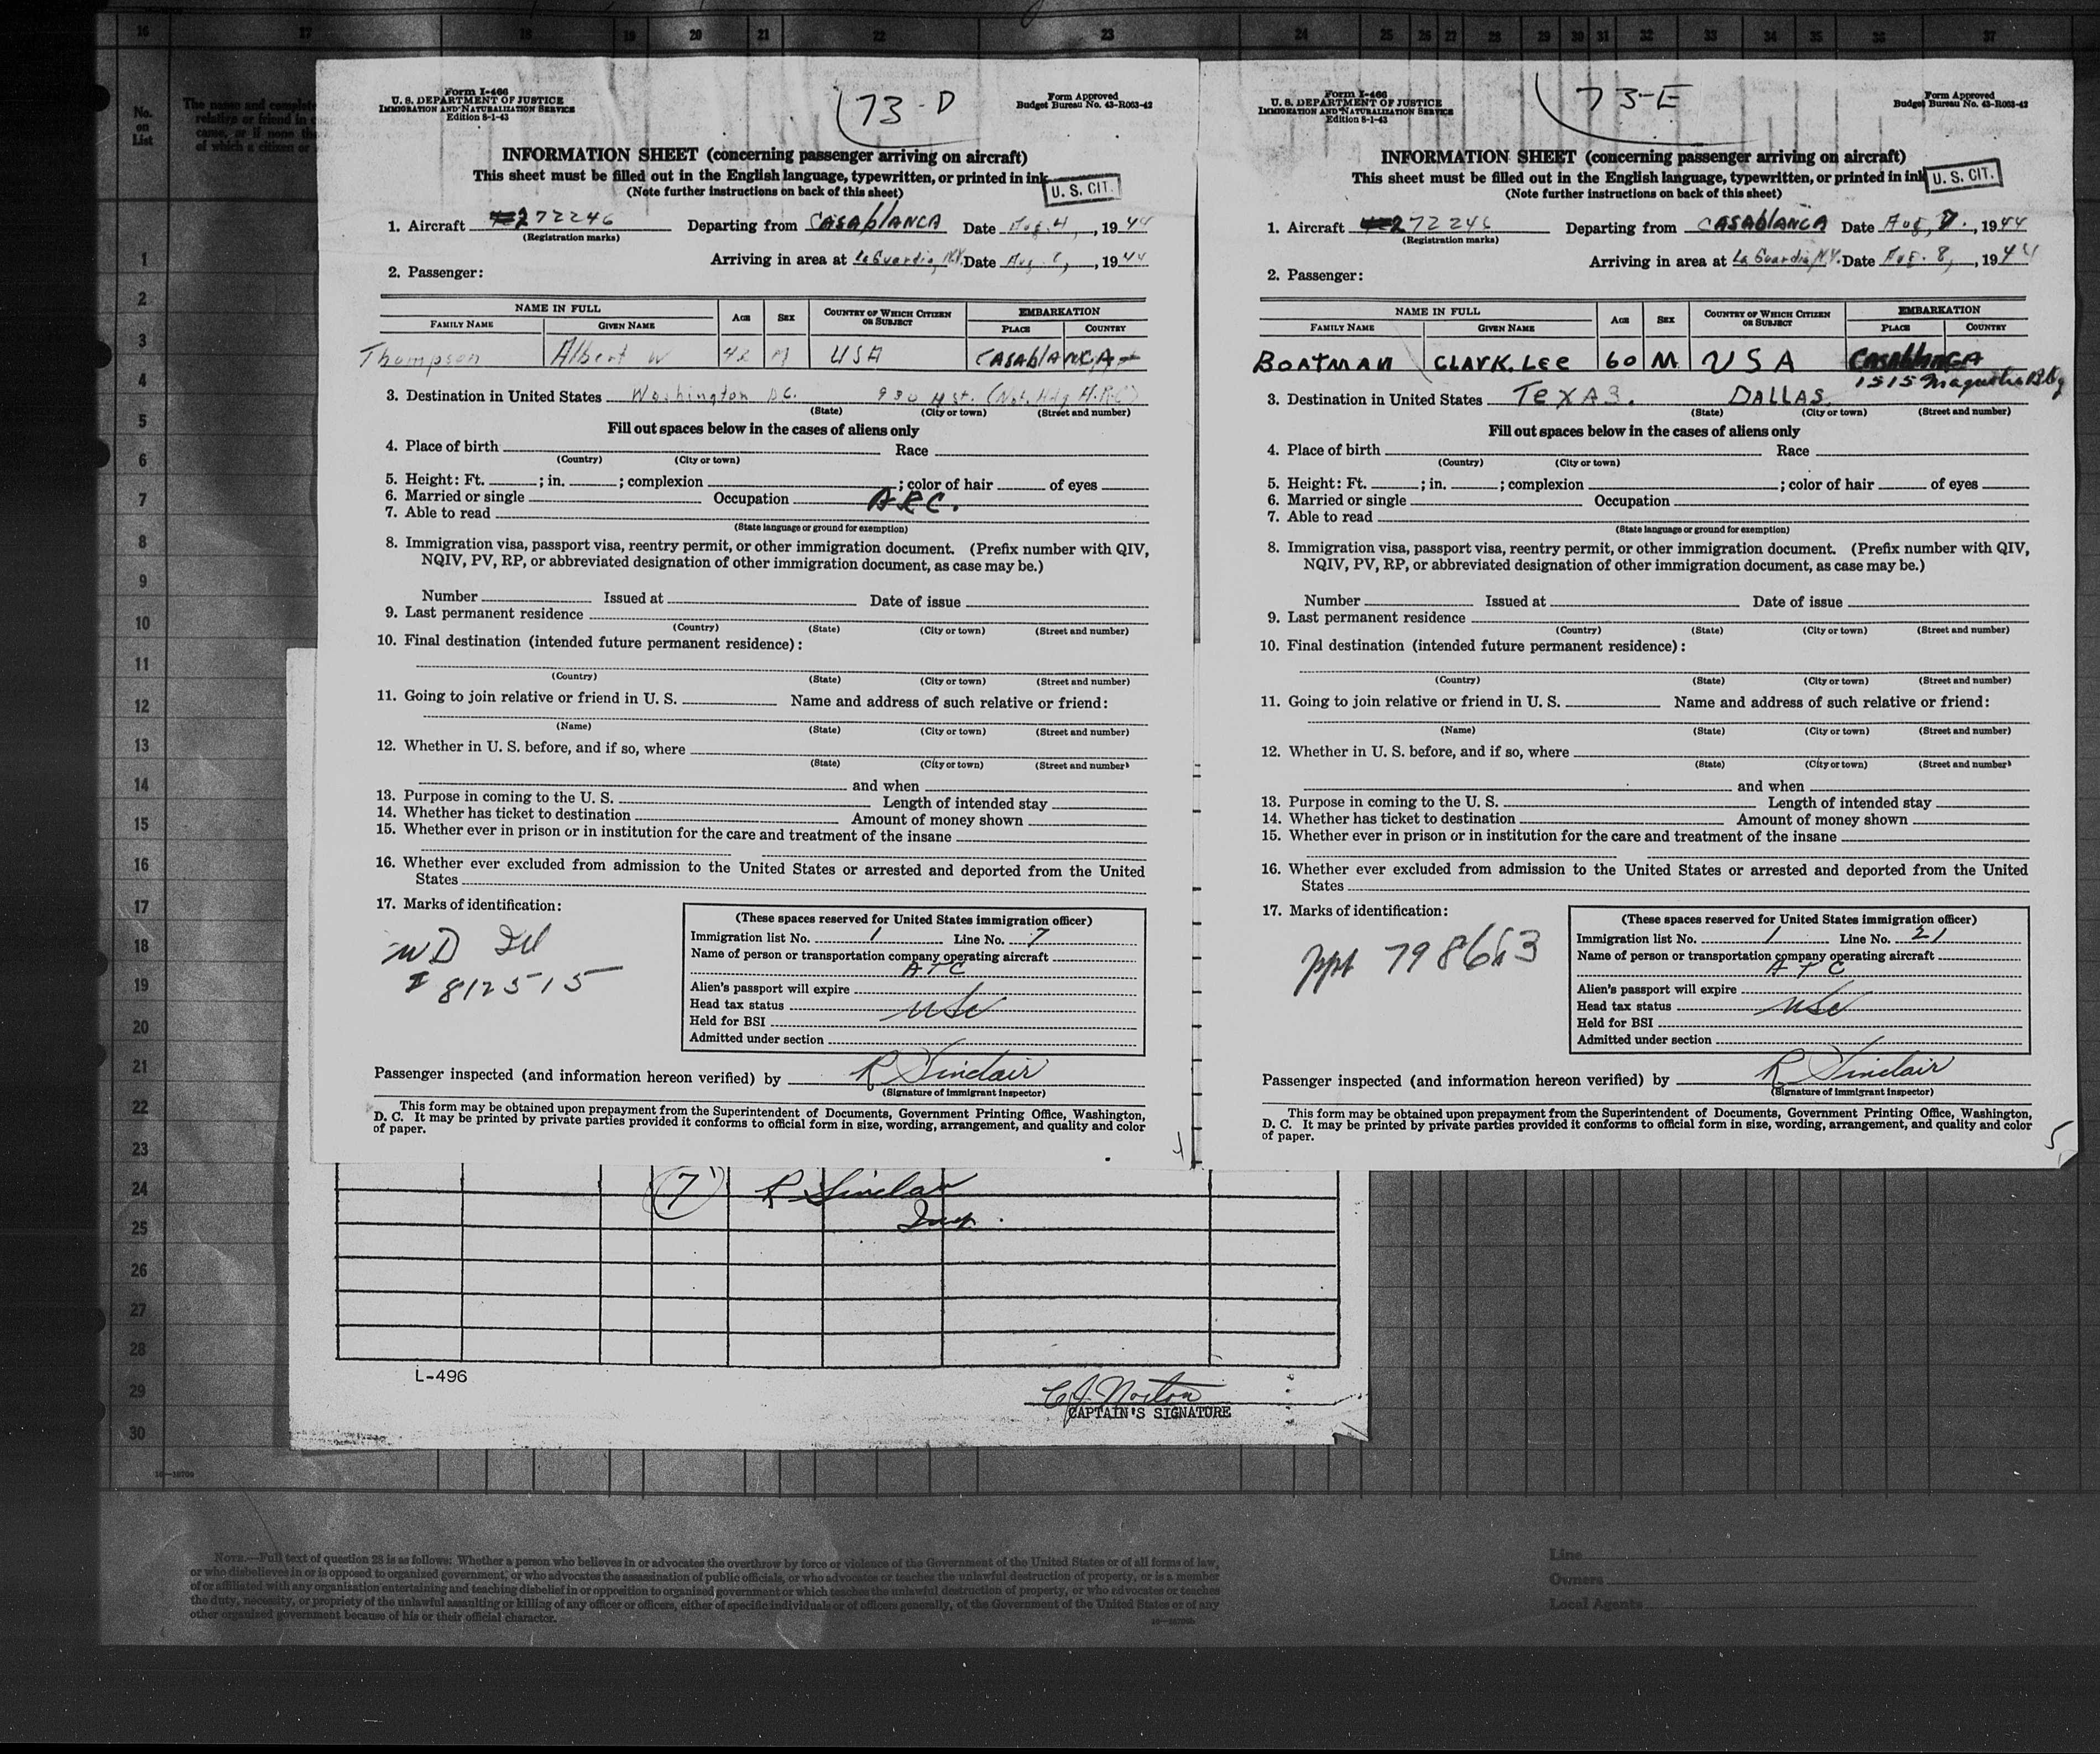 16 17 18 19 20 21 22 23 24 25 26 27 28 29 30 31 32 33 34 35 36 37
No. on List
The name and complete
relative or friend in c
case, or if none the
of which a citizen or
1
2
3
4
5
6
7
8
9
10
11
12
13
14
15
16
17
18
19
20
21
22
23
24
25
26
27
28
29
30
Form I-466
U. S. DEPARTMENT OF JUSTICE
IMMIGRATION AND NATURALIZATION SERVICE
Edition 8-1-43
73-D
Form Approved
Budget Bureau No. 43-R063-42
INFORMATION SHEET (concerning passenger arriving on aircraft)
This sheet must be filled out in the English language, typewritten, or printed in ink
(Note further instructions on back of this sheet)
U. S. CIT.
1. Aircraft 272246 Departing from CASAblANCA Date Aug. 4, 1944
(Registration marks)
Arriving in area at La Guardia, N.Y. Date Aug. , 1944
2. Passenger:
NAME IN FULL AGE SEX COUNTRY OF WHICH CITIZEN OR SUBJECT EMBARKATION
FAMILY NAME GIVEN NAME PLACE COUNTRY
Thompson Albert W 42 M USA CASAblANCA
3. Destination in United States Washington D.C. 930 H st.
(State) (City or town) (Street and number)
Fill out spaces below in the cases of aliens only
4. Place of birth Race
(Country) (City or town)
5. Height: Ft. ; in. ; complexion ; color of hair of eyes
6. Married or single Occupation ARC.
7. Able to read
(State language or ground for exemption)
8. Immigration visa, passport visa, reentry permit, or other immigration document. (Prefix number with QIV,
NQIV, PV, RP, or abbreviated designation of other immigration document, as case may be.)
Number Issued at Date of issue
9. Last permanent residence
(Country) (State) (City or town) (Street and number)
10. Final destination (intended future permanent residence):
(Country) (State) (City or town) (Street and number)
11. Going to join relative or friend in U. S. Name and address of such relative or friend:
(Name) (State) (City or town) (Street and number)
12. Whether in U. S. before, and if so, where
(State) (City or town) (Street and number)
and when
13. Purpose in coming to the U. S. Length of intended stay
14. Whether has ticket to destination Amount of money shown
15. Whether ever in prison or in institution for the care and treatment of the insane
16. Whether ever excluded from admission to the United States or arrested and deported from the United
States
17. Marks of identification:
WD
# 812515
(These spaces reserved for United States immigration officer)
Immigration list No. 1 Line No. 7
Name of person or transportation company operating aircraft
ATC
Alien's passport will expire
Head tax status USC
Held for BSI
Admitted under section
Passenger inspected (and information hereon verified) by R Sinclair
(Signature of Immigrant Inspector)
This form may be obtained upon prepayment from the Superintendent of Documents, Government Printing Office, Washington,
D. C. It may be printed by private parties provided it conforms to official form in size, wording, arrangement, and quality and color
of paper.
4
Form I-466
U. S. DEPARTMENT OF JUSTICE
IMMIGRATION AND NATURALIZATION SERVICE
Edition 8-1-43
73-E
Form Approved
Budget Bureau No. 43-R063-42
INFORMATION SHEET (concerning passenger arriving on aircraft)
This sheet must be filled out in the English language, typewritten, or printed in ink
(Note further instructions on back of this sheet)
U. S. CIT.
1. Aircraft 272246 Departing from CASAblANCA Date Aug, 7., 1944
(Registration marks)
Arriving in area at La Guardia, N.Y. Date Aug. 8, 1944
2. Passenger:
NAME IN FULL AGE SEX COUNTRY OF WHICH CITIZEN OR SUBJECT EMBARKATION
FAMILY NAME GIVEN NAME PLACE COUNTRY
BOATMAN CLARK. LEE 60 M USA CASAblANCA
1515 Magnolia Bldg
3. Destination in United States TEXAS. DALLAS.
(State) (City or town) (Street and number)
Fill out spaces below in the cases of aliens only
4. Place of birth Race
(Country) (City or town)
5. Height: Ft. ; in. ; complexion ; color of hair of eyes
6. Married or single Occupation
7. Able to read
(State language or ground for exemption)
8. Immigration visa, passport visa, reentry permit, or other immigration document. (Prefix number with QIV,
NQIV, PV, RP, or abbreviated designation of other immigration document, as case may be.)
Number Issued at Date of issue
9. Last permanent residence
(Country) (State) (City or town) (Street and number)
10. Final destination (intended future permanent residence):
(Country) (State) (City or town) (Street and number)
11. Going to join relative or friend in U. S. Name and address of such relative or friend:
(Name) (State) (City or town) (Street and number)
12. Whether in U. S. before, and if so, where
(State) (City or town) (Street and number)
and when
13. Purpose in coming to the U. S. Length of intended stay
14. Whether has ticket to destination Amount of money shown
15. Whether ever in prison or in institution for the care and treatment of the insane
16. Whether ever excluded from admission to the United States or arrested and deported from the United
States
17. Marks of identification:
ppt 798663
(These spaces reserved for United States immigration officer)
Immigration list No. 1 Line No. 21
Name of person or transportation company operating aircraft
ATC
Alien's passport will expire
Head tax status USC
Held for BSI
Admitted under section
Passenger inspected (and information hereon verified) by R Sinclair
(Signature of Immigrant Inspector)
This form may be obtained upon prepayment from the Superintendent of Documents, Government Printing Office, Washington,
D. C. It may be printed by private parties provided it conforms to official form in size, wording, arrangement, and quality and color
of paper.
5
7 R Sinclair
Insp.
L-496
C J Norton
CAPTAIN'S SIGNATURE
NOTE.—Full text of question 28 is as follows: Whether a person who believes in or advocates the overthrow by force or violence of the Government of the United States or of all forms of law,
or who disbelieves in or is opposed to organized government, or who advocates the assassination of public officials, or who advocates or teaches the unlawful destruction of property, or is a member
of or affiliated with any organization entertaining and teaching disbelief in or opposition to organized government or which teaches the unlawful destruction of property, or who advocates or teaches
the duty, necessity, or propriety of the unlawful assaulting or killing of any officer or officers, either of specific individuals or of officers generally, of the Government of the United States or of any
other organized government because of his or their official character.
Line
Owners
Local Agents